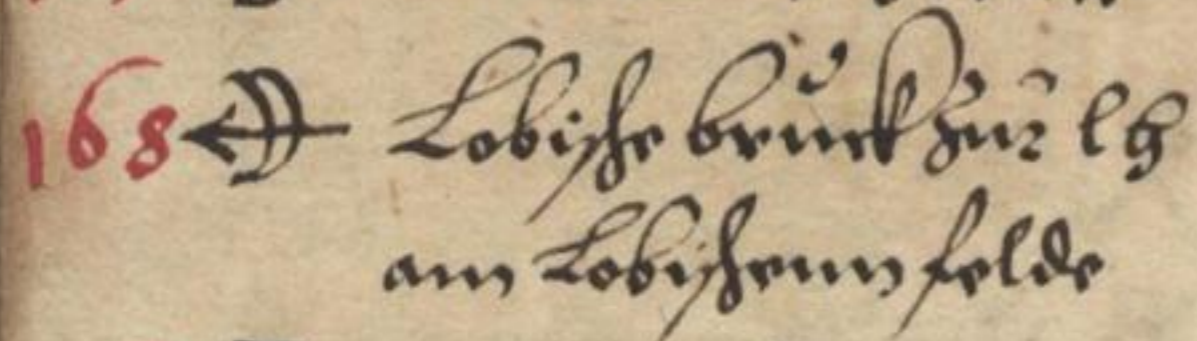 168 Lobische bruck zur lh
am Lobischenn felde